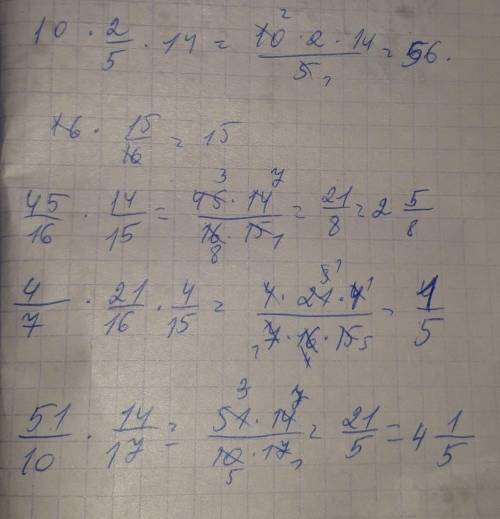 10 · 2/5 · 14 = (10 · 2 · 14)/5 = 56.
16 · 15/16 = 15
45/16 · 14/15 = (45 · 14)/(16 · 15) = 21/8 = 2 5/8
4/7 · 21/16 · 4/15 = (4 · 21 · 4)/(7 · 16 · 15) = 1/5
51/10 · 14/17 = (51 · 14)/(10 · 17) = 21/5 = 4 1/5